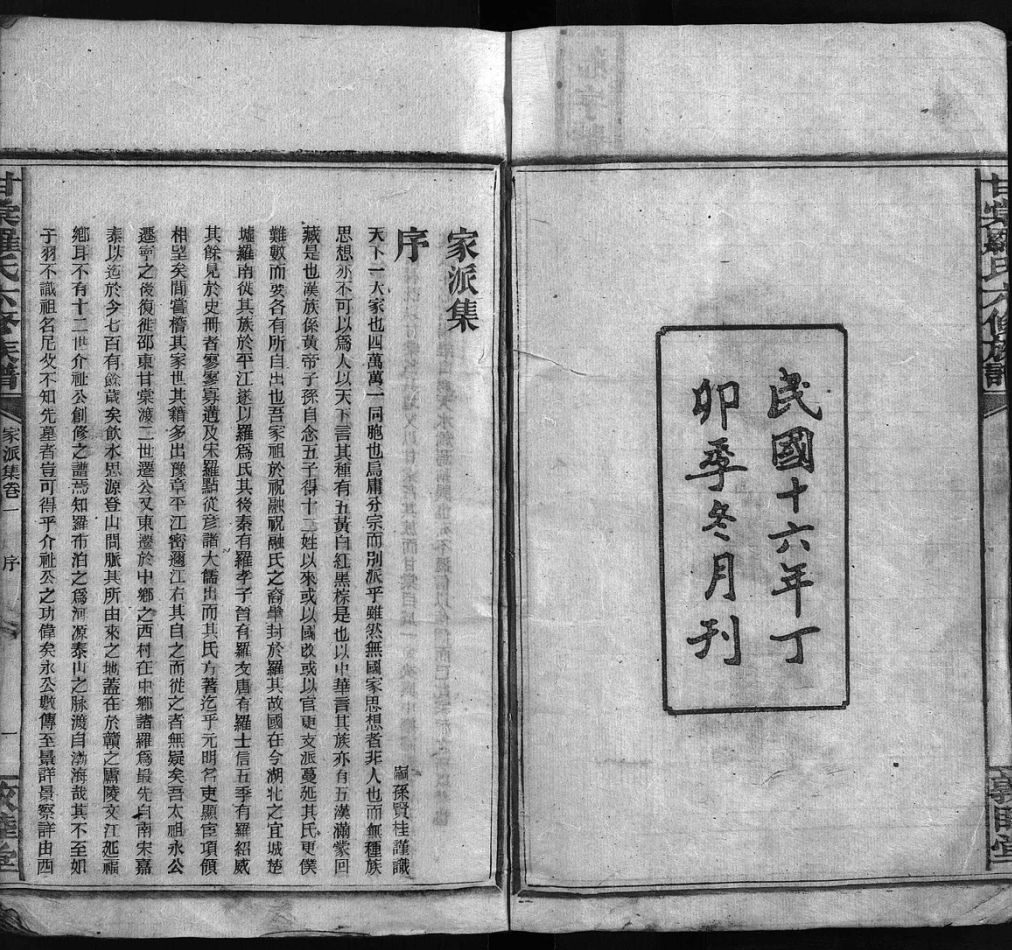 甘棠羅氏六修族譜
敦睦堂
民國十六年丁
卯季冬月刊
家派集
序
嗣孫賢桂謹識
天下一大家也四萬萬一同胞也烏庸分宗而別派乎雖然無國家思想者非人也而無種族
思想亦不可以爲人以天下言其種有五黃白紅黑棕是也以中華言其族亦有五漢滿蒙回
藏是也漢族係黃帝子孫自念五子得十二姓以來或以國改或以官更支派蔓延其氏更僕
難數而要各有所自出也吾家祖於祝融祝融氏之裔舉封於羅其故國在今湖北之宜城楚
墟羅南徙其族於平江遂以羅爲氏其後秦有羅李子晉有羅友唐有羅士信五季有羅紹威
其餘見於史冊者寥寥寡遘及宋羅點從彥諸大儒出而其氏方著迄乎元明名吏顯宦項領
相望矣間嘗稽其家世其籍多出豫章平江密邇江右其自之而徙之者無疑矣吾太祖永公
遷寧之後復徙邵東甘棠渡二世遷公又東遷於中鄉之西村在中鄉諸羅爲最先自南宋嘉
泰以迄於今七百有餘歲矣飲水思源登山問脈其所由來之地蓋在於贛之廬陵文江延福
鄉耳不有十二世介祉公創修之譜焉知羅布泊之爲河源泰山之脉渡自渤海哉其不至如
于羽不識祖名尼父不知先墓者豈可得乎介祉公之功偉矣永公數傳至景詳景察詳由西
甘棠羅氏六修族譜
家派集卷一
序
一
敦睦堂